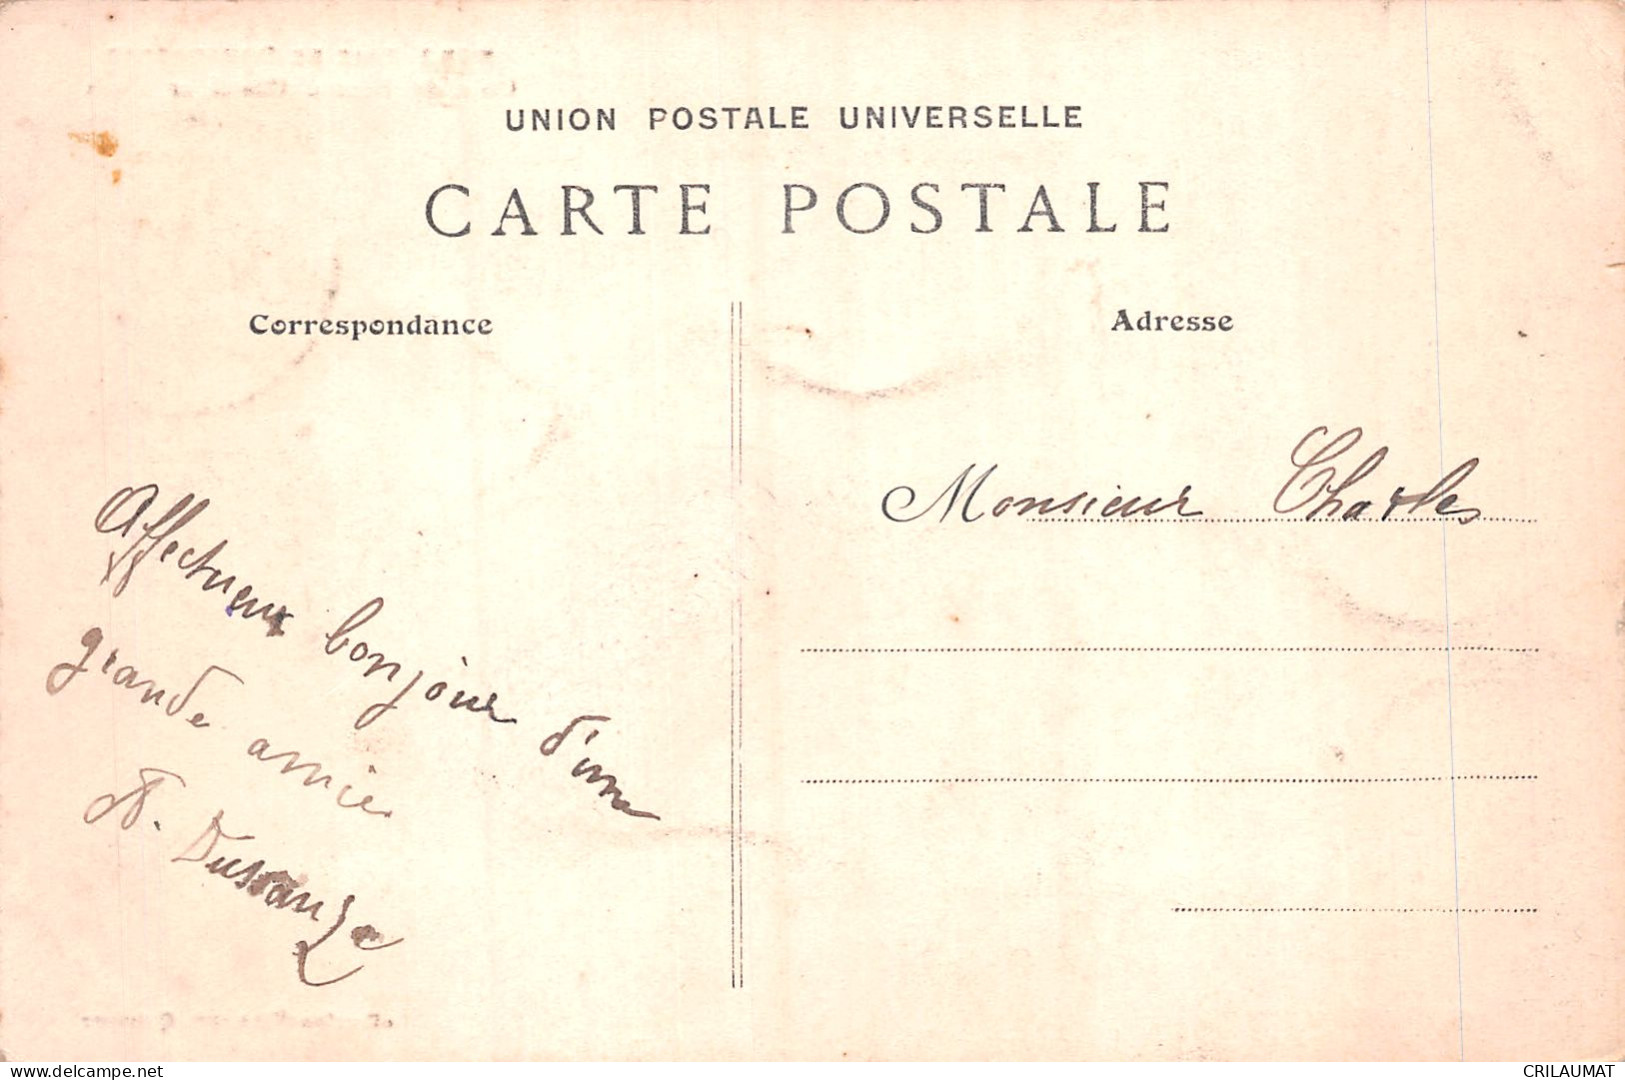 UNION POSTALE UNIVERSELLE
CARTE POSTALE
Correspondance
Affectueux bonjour d'une
grande amie
Dussauze
Adresse
Monsieur Charles
www.delcampe.net
CRILAUMAT